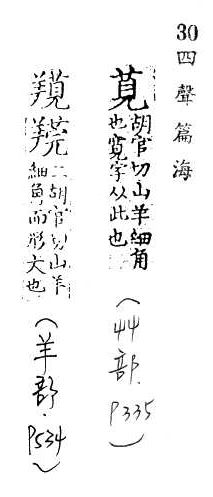 30 四聲篇海
萈
胡官切山羊細角
也寬字从此也
(艸部. P335)
二胡官切山羊
細角而形大也
(羊部. P534)